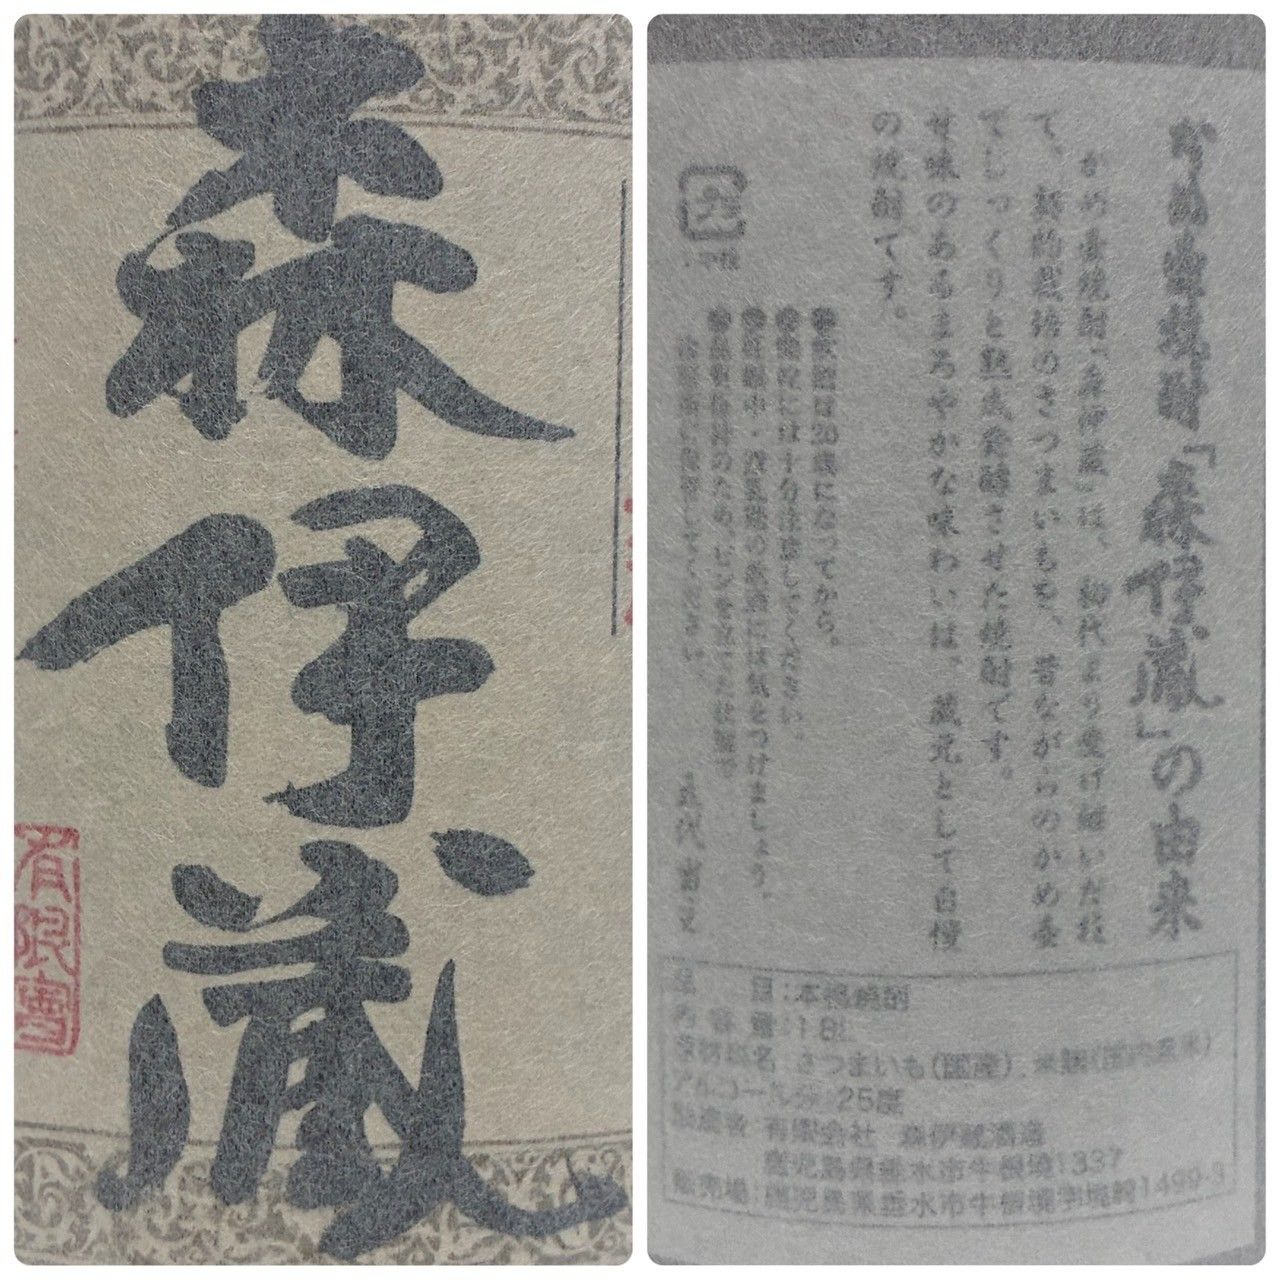 森伊蔵
有限会
かめ壷焼酎「森伊蔵」の由来
かめ壷焼酎「森伊蔵」は、初代より受け継いだ
て、契約栽培のさつまいもを、昔ながらのかめ壷
でじっくりと熟成発酵させた焼酎です。
甘味のあるまろやかな味わいは、蔵元として自慢
の焼酎です。
●飲酒は20歳になってから。
には十分注意してください。
●妊娠中・授乳期の飲酒には気をつけましょう。
品目:本格焼酎
内容量:1.8L
原材料名 さつまいも(国産)、米麹(国内産米)
アルコール分 25度
製造者 有限会社 森伊蔵酒造
鹿児島県垂水市牛根境1337
販売場:鹿児島県垂水市牛根境字境崎1499-3